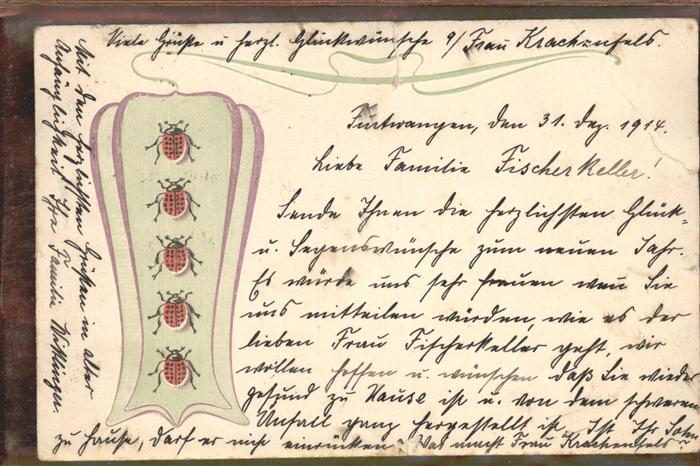 Viele Grüße u herzl. Glückwünsche a/ Frau Krachenfels.
Furtwangen, den 31. Dez. 1914.
Liebe Familie Fischerkeller!
Sende Ihnen die herzlichsten Glück-
u. Segenswünsche zum neuen Jahr.
Es würde uns sehr freuen wen Sie
uns mitteilen würden, wie es der
lieben Frau Fischerkeller geht, wir
wollen hoffen u. wünschen daß Sie wieder
gesund zu Hause ist u. von dem schweren
Unfall ganz hergestellt ist. Ist Ihr Sohn
zu Hause, darf er nich einrücken? Was macht Frau Krachenfels
Mit den herzlichsten Grüßen in alter
Anhänglichkeit Ihre Familie